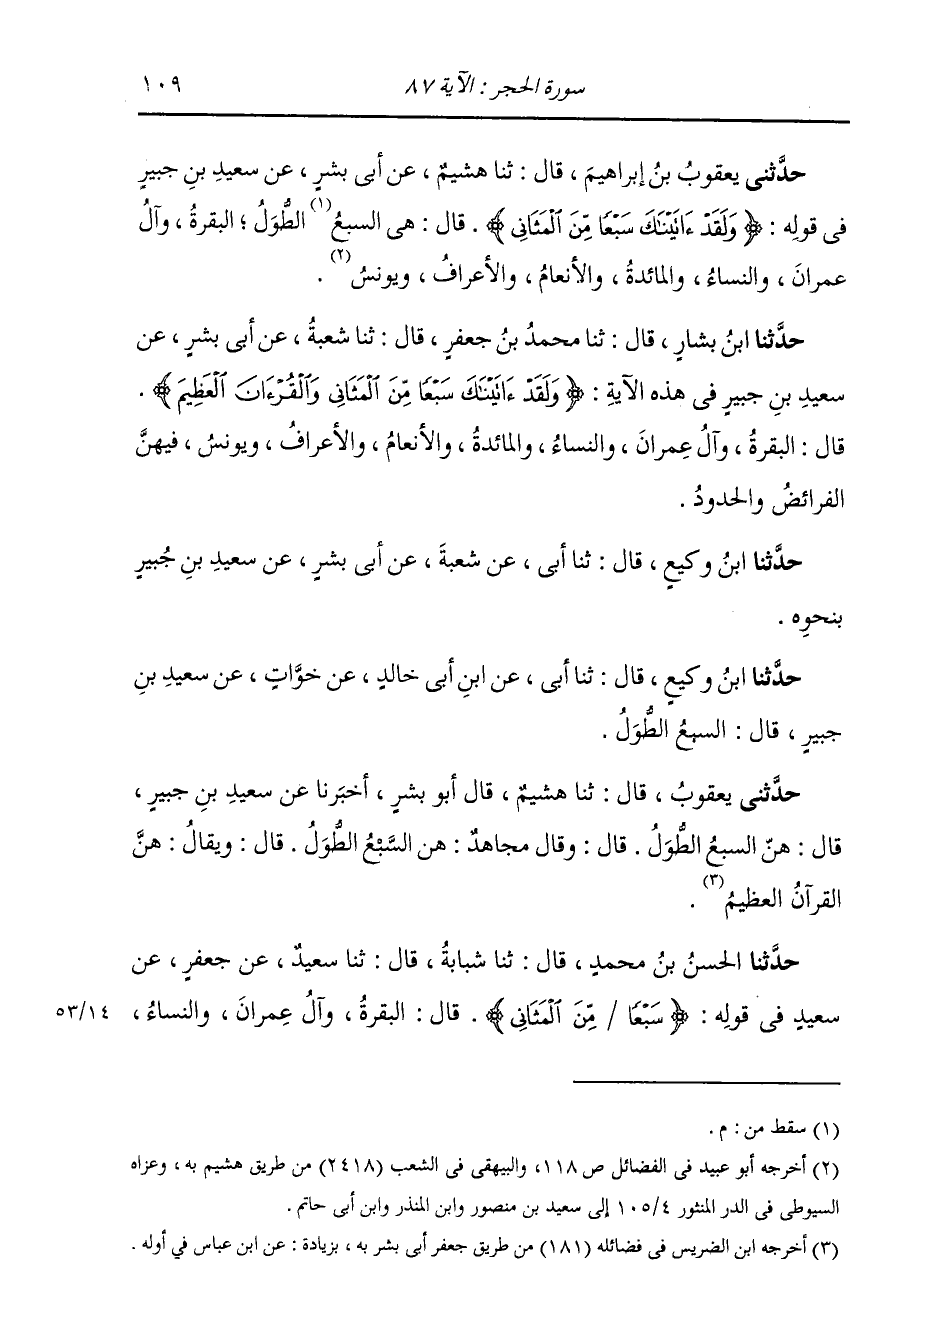 سورة الحجر : الآية ٨٧
١٠٩
حدَّثنى يعقوبُ بنُ إبراهيمَ ، قال : ثنا هشيمٌ ، عن أبى بشرٍ ، عن سعيدِ بنِ جبيرٍ
فى قولِه : ﴿ وَلَقَدْ ءَاتَيْنَاكَ سَبْعًا مِّنَ ٱلْمَثَانِى ﴾ . قال : هى السبعُ (١) الطُّوَلُ ؛ البقرةُ ، وآلُ
عمرانَ ، والنساءُ ، والمائدةُ ، والأنعامُ ، والأعرافُ ، ويونسُ (٢) .
حدَّثنا ابنُ بشارٍ ، قال : ثنا محمدُ بنُ جعفرٍ ، قال : ثنا شعبةُ ، عن أبى بشرٍ ، عن
سعيدِ بنِ جبيرٍ فى هذه الآيةِ : ﴿ وَلَقَدْ ءَاتَيْنَاكَ سَبْعًا مِّنَ ٱلْمَثَانِى وَٱلْقُرْءَانَ ٱلْعَظِيمَ ﴾ .
قال : البقرةُ ، وآلُ عِمرانَ ، والنساءُ ، والمائدةُ ، والأنعامُ ، والأعرافُ ، ويونسُ ، فيهنَّ
الفرائضُ والحدودُ .
حدَّثنا ابنُ وكيعٍ ، قال : ثنا أبى ، عن شعبةَ ، عن أبى بشرٍ ، عن سعيدِ بنِ جُبيرٍ
بنحوِه .
حدَّثنا ابنُ وكيعٍ ، قال : ثنا أبى ، عن ابنِ أبى خالدٍ ، عن خوَّاتٍ ، عن سعيدِ بنِ
جبيرٍ ، قال : السبعُ الطُّوَلُ .
حدَّثنى يعقوبُ ، قال : ثنا هشيمٌ ، قال أبو بشرٍ ، أخبَرنا عن سعيدِ بنِ جبيرٍ ،
قال : هنّ السبعُ الطُّوَلُ . قال : وقال مجاهدٌ : هن السَّبْعُ الطُّوَلُ . قال : ويقالُ : هنَّ
القرآنُ العظيمُ (٣) .
حدَّثنا الحسنُ بنُ محمدٍ ، قال : ثنا شبابةُ ، قال : ثنا سعيدٌ ، عن جعفرٍ ، عن
سعيدٍ فى قولِه : ﴿ سَبْعًا / مِّنَ ٱلْمَثَانِى ﴾ . قال : البقرةُ ، وآلُ عِمرانَ ، والنساءُ ،
٥٣/١٤
(١) سقط من : م .
(٢) أخرجه أبو عبيد فى الفضائل ص ١١٨، والبيهقى فى الشعب (٢٤١٨) من طريق هشيم به ، وعزاه
السيوطى فى الدر المنثور ١٠٥/٤ إلى سعيد بن منصور وابن المنذر وابن أبى حاتم .
(٣) أخرجه ابن الضريس فى فضائله (١٨١) من طريق جعفر أبى بشر به ، بزيادة : عن ابن عباس في أوله .